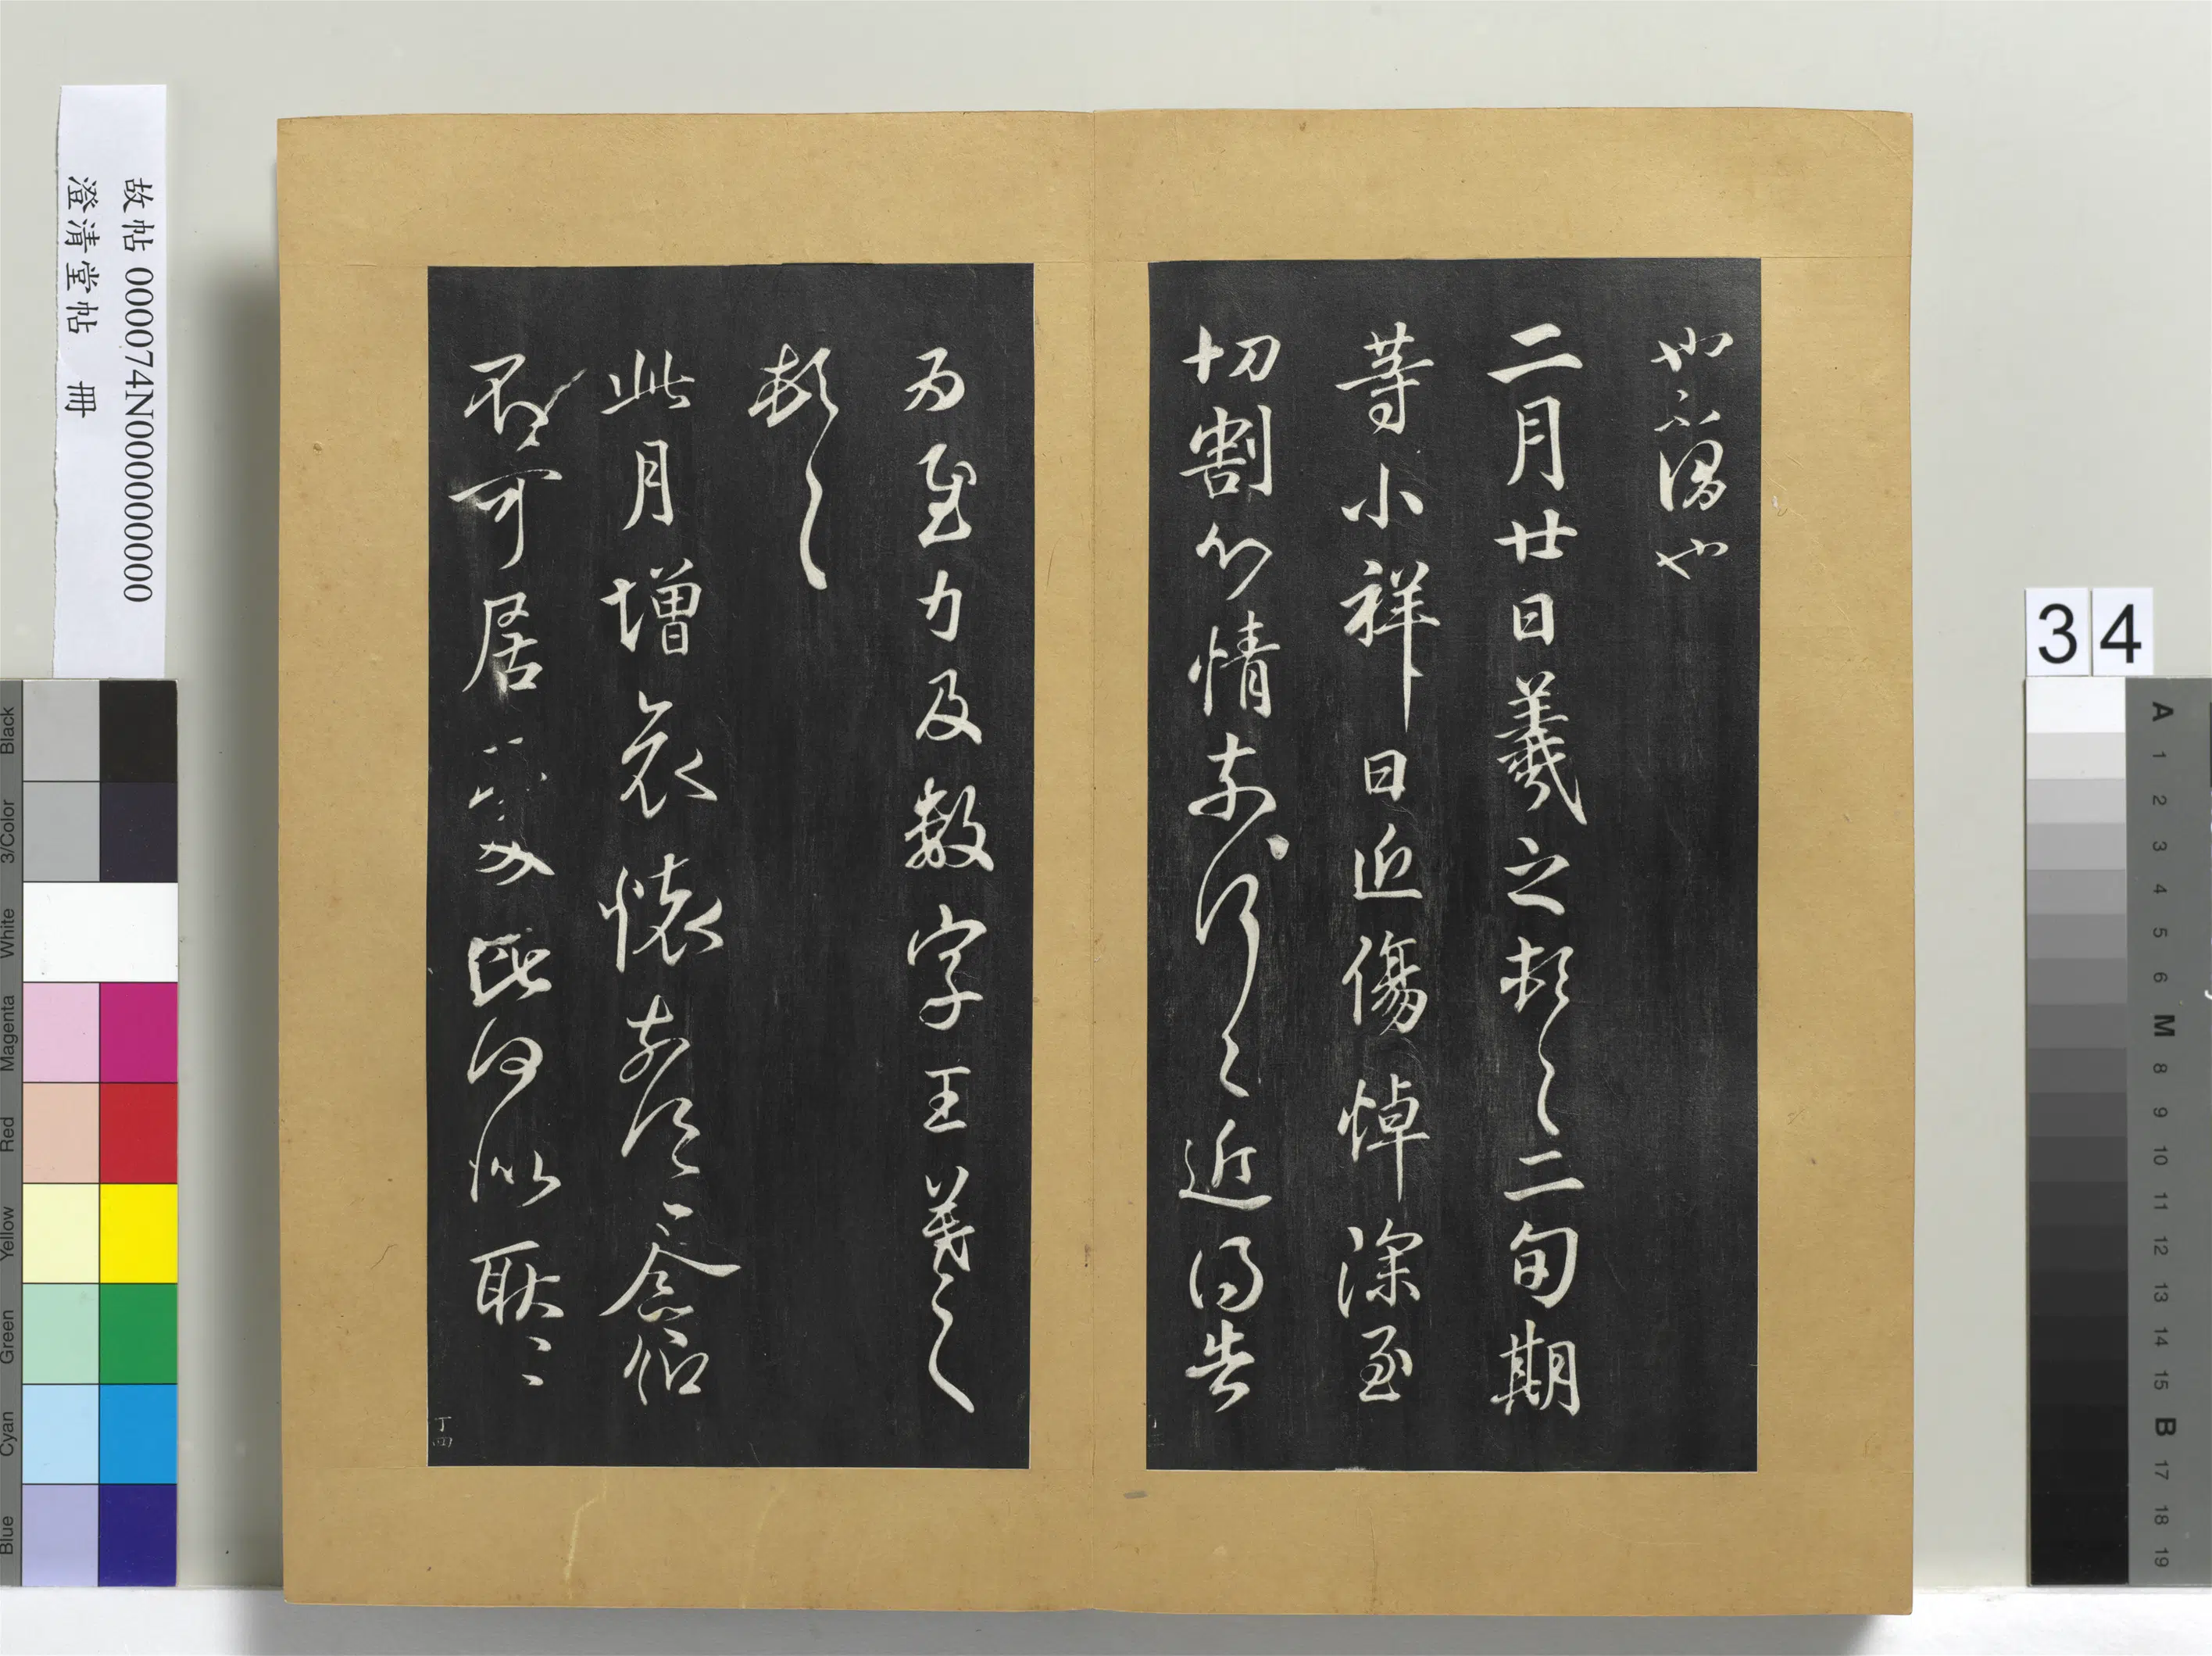 也不得也
二月廿日羲之頓首二旬期
等小祥日近傷悼深至
切割心情奈何〻近得告
為慰力及數字王羲之
頓首
此月增哀懷奈何念
不可居
此何似耿〻
丁四
故帖 000074N000000000
澄清堂帖 冊
34
Black
3/Color
White
Magenta
Red
Yellow
Green
Cyan
Blue
A
1
2
3
4
5
6
M
8
9
10
11
12
13
14
15
B
17
18
19